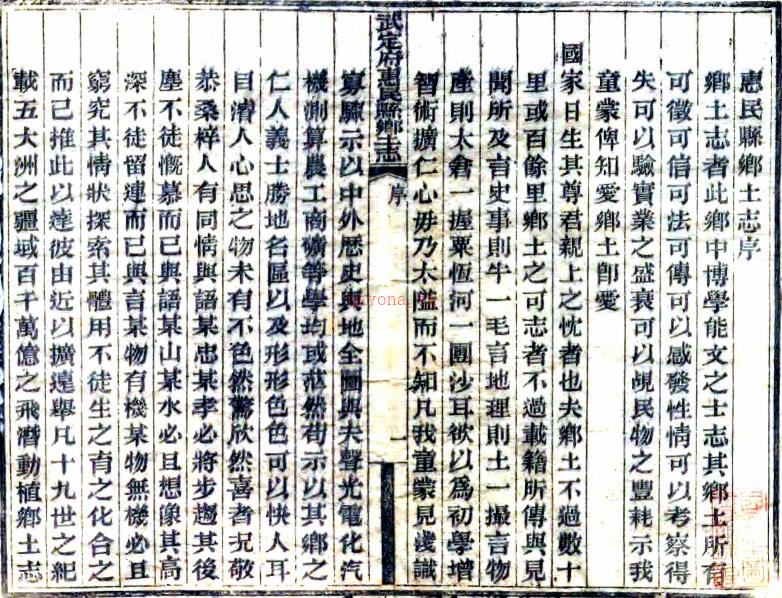 惠民縣鄉土志序
鄉土志者此鄉中博學能文之士志其鄉土所有
可徵可信可法可傳可以感發性情可以考察得
失可以驗實業之盛衰可以覘民物之豐耗示我
童蒙俾知愛鄉土卽愛
國家日生其尊君親上之忱者也夫鄉土不過數十
里或百餘里鄉土之可志者不過載籍所傳與見
聞所及言史事則牛一毛言地理則土一撮言物
產則太倉一握粟恆河一團沙耳欲以爲初學增
智術擴仁心毋乃太隘而不知凡我童蒙見淺識
武定府惠民縣鄉土志
序
一
寡驟示以中外歷史輿地全圖與夫聲光電化汽
機測算農工商礦等學均或茫然苟示以其鄉之
仁人義士勝地名區以及形形色色可以快人耳
目濬人心思之物未有不色然驚欣然喜者况敬
恭桑梓人有同情與語某忠某孝必將步趨其後
塵不徒慨慕而已與語某山某水必且想像其高
深不徒留連而已與言某物有機某物無機必且
窮究其情狀探索其體用不徒生之育之化合之
而已推此以達彼由近以擴遠舉凡十九世之紀
載五大洲之疆域百千萬億之飛潛動植鄉土志